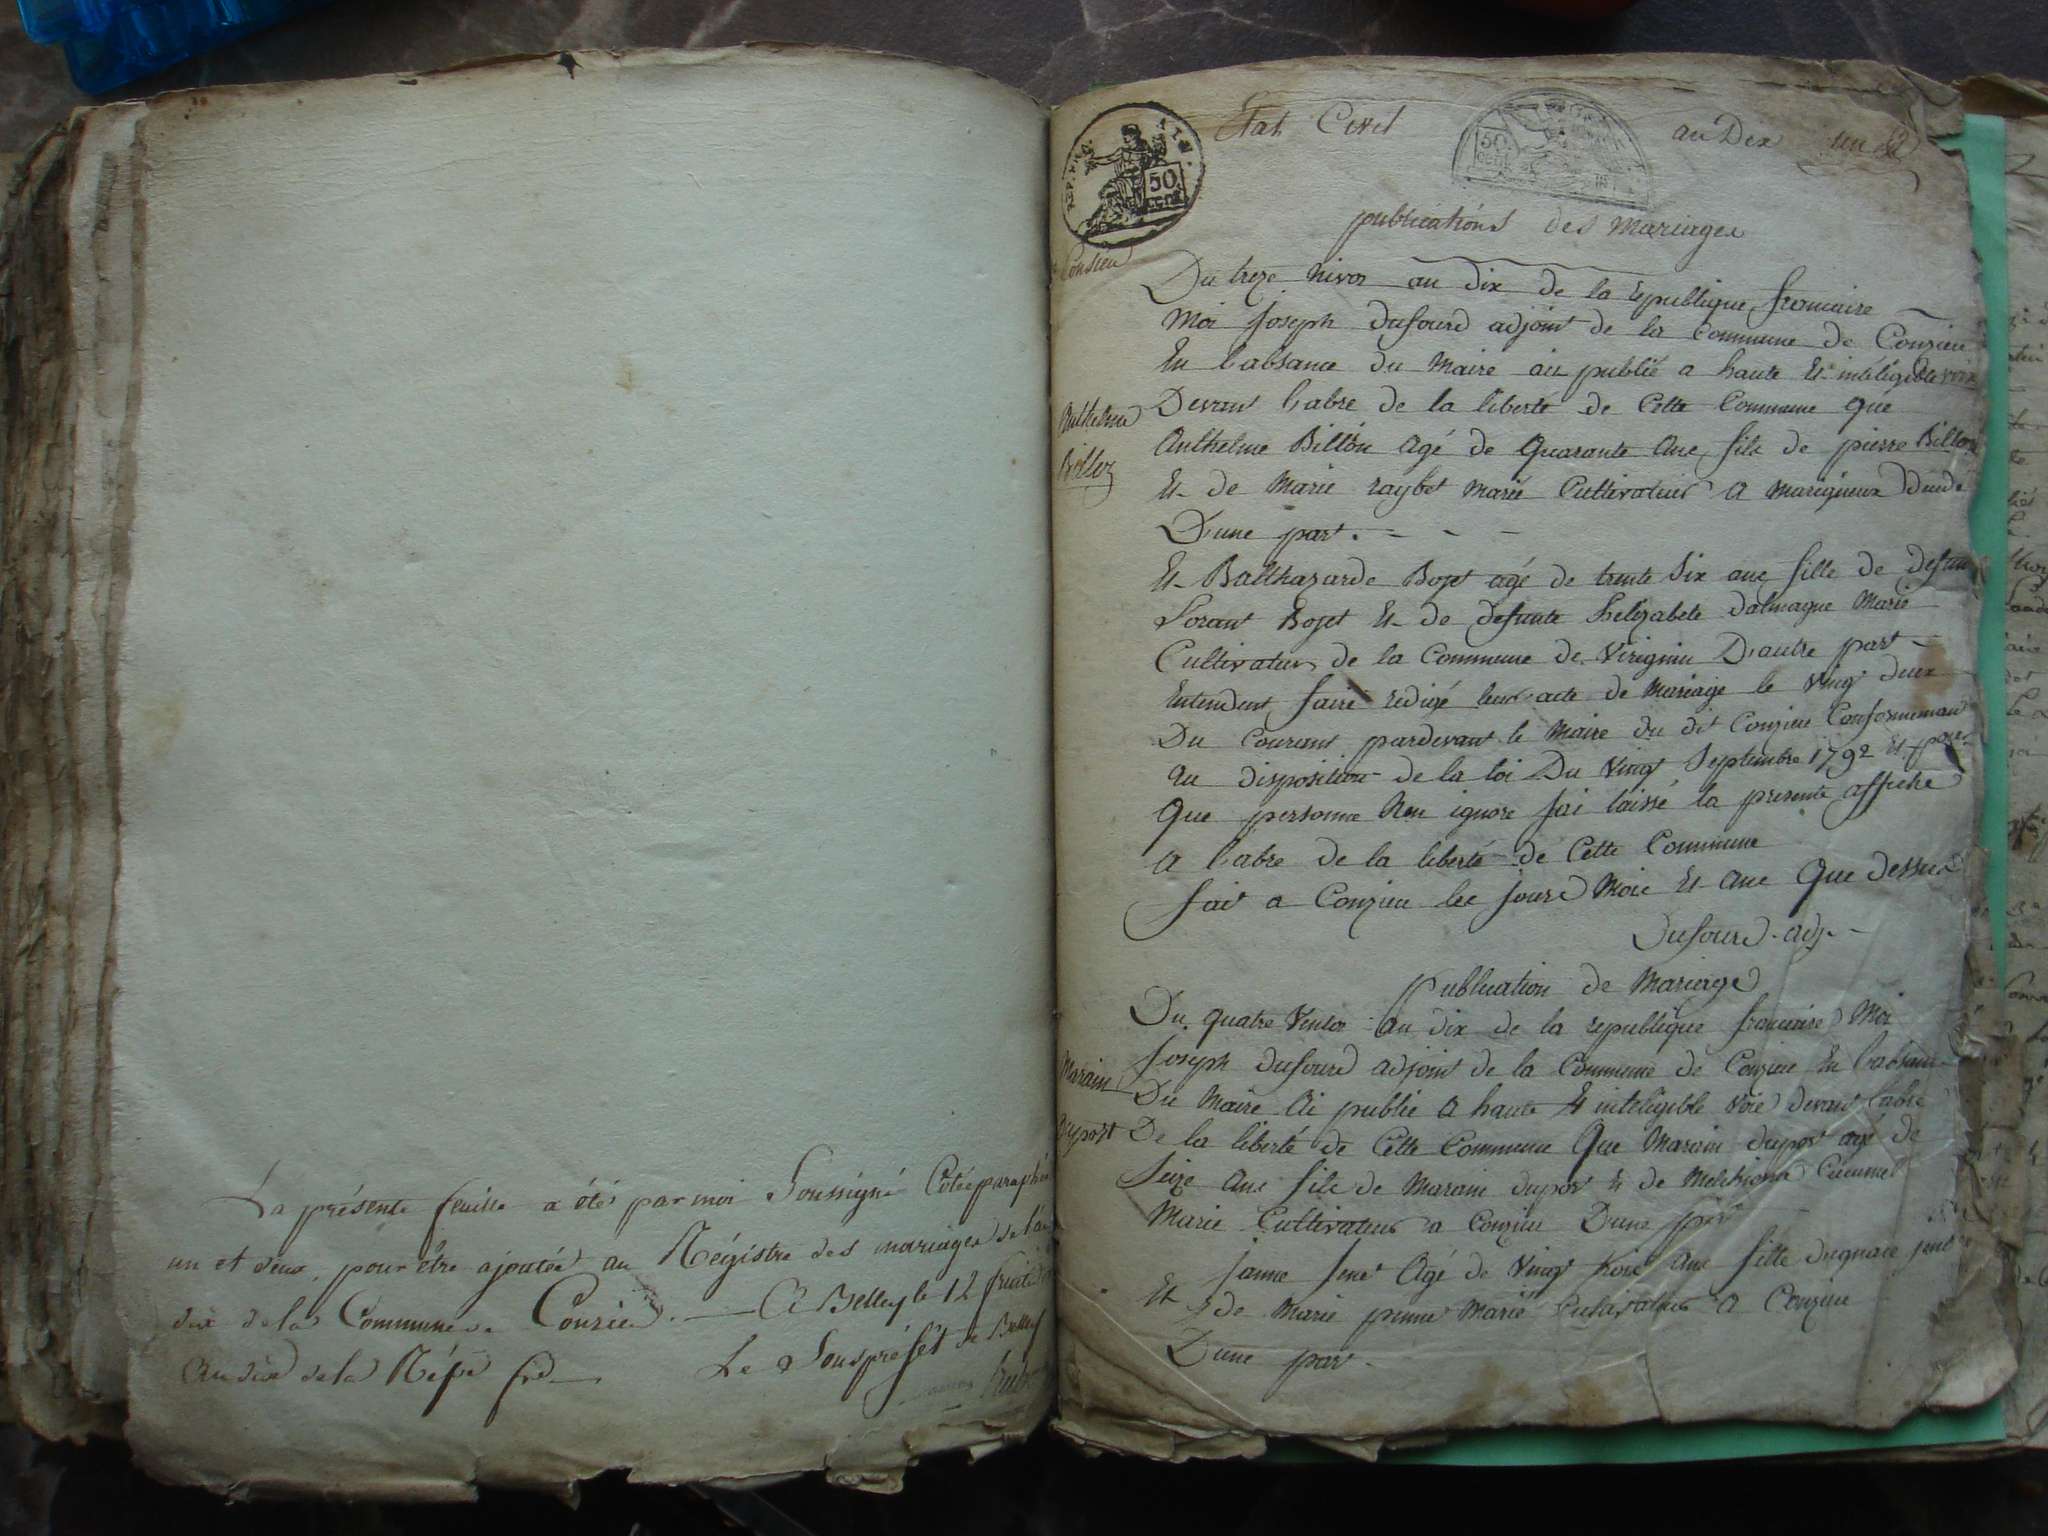 La présente feuille a été par moi Soussigné Cotée paraphée
un et deux, pour être ajoutée au Régistre des mariages de l'an
dix de la Commune de Conzieu. — A Belley le 12 fruct.
An dix de la Rép. fr.
Le Souspréfét de Belley
Etat Civil an Dix un
50
publications des Mariages
Conzieu
Du treze Nivos an dix de la republique francaise
Moi Joseph Dufourd adjoint de la Commune de Conzieu
En labsance du Maire ait publié a haute Et intéligeble voix
Devant labre de la liberté de Cette Commune que
Anthelme
Billoz
Anthelme Billon agé de Quarante Ans fils de pierre Billon
Et de Marie raybet Marié Cultivateur A Marigneux
D'une part.
Et Balthazarde Bojet agé de trente Six ans fille de defun
Lorant Bojet Et de defunte helizabete dalmagne Marié
Cultivateur de la Commune de Virignin D'autre part
Entendent faire redigé leur acte de Mariage le Vingt deux
Du Courant pardevant le Maire du dit Conzieu Conformeman
au disposition de la loi Du Vingt Septembre 1792 Et pour
Que personne Nen ignore Jai laissé la presente affiche
A labre de la liberté de Cette Commune
fait a Conzieu les Jours Mois Et ans Que dessus
Dufourd adj.
publication de Mariage
Du quatre Ventos an dix de la republique francaise Moi
Joseph dufourd adjoint de la Commune de Conzieu En labsan
Marain
Du Maire Ai publié A haute Et inteligible voie devant labre
duport
De la liberté de Cette Commune Que Marain dupor agé de
Seize Ans fils de Marain dupor Et de Melchione
Marié Cultivateur a Conzieu D'une part
Et Janne Agé de Vingt trois Ans fille
de Marie Marié Cultivateur A Conzieu
D'une par